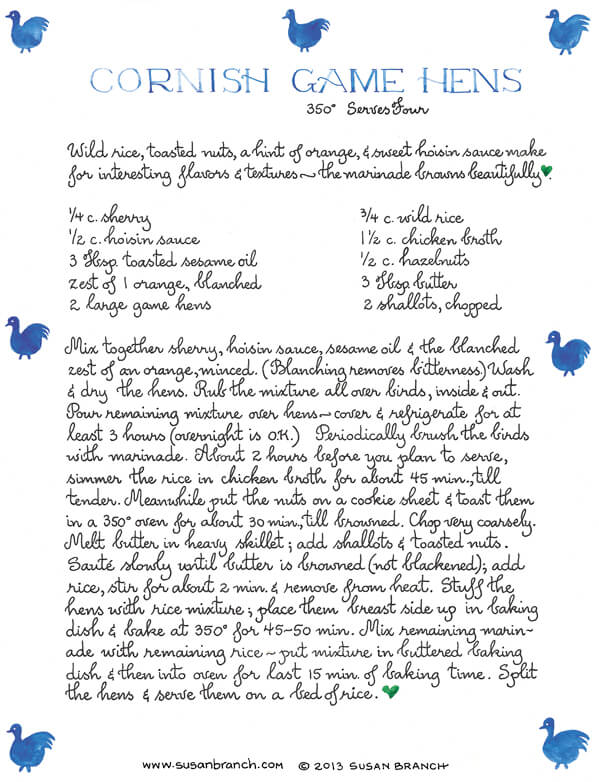 CORNISH GAME HENS
350° Serves Four
Wild rice, toasted nuts, a hint of orange, & sweet hoisin sauce make
for interesting flavors & textures ~ the marinade browns beautifully.
1/4 c. sherry
1/2 c. hoisin sauce
3 Tbsp. toasted sesame oil
zest of 1 orange, blanched
2 large game hens
3/4 c. wild rice
1 1/2 c. chicken broth
1/2 c. hazelnuts
3 Tbsp butter
2 shallots, chopped
Mix together sherry, hoisin sauce, sesame oil & the blanched
zest of an orange, minced. (Blanching removes bitterness.) Wash
& dry the hens. Rub the mixture all over birds, inside & out.
Pour remaining mixture over hens ~ cover & refrigerate for at
least 3 hours (overnight is O.K.) Periodically brush the birds
with marinade. About 2 hours before you plan to serve,
simmer the rice in chicken broth for about 45 min., till
tender. Meanwhile put the nuts on a cookie sheet & toast them
in a 350° oven for about 30 min., till browned. Chop very coarsely.
Melt butter in heavy skillet; add shallots & toasted nuts.
Sauté slowly until butter is browned (not blackened); add
rice, stir for about 2 min. & remove from heat. Stuff the
hens with rice mixture; place them breast side up in baking
dish & bake at 350° for 45-50 min. Mix remaining marin-
ade with remaining rice ~ put mixture in buttered baking
dish & then into oven for last 15 min. of baking time. Split
the hens & serve them on a bed of rice.
www.susanbranch.com © 2013 SUSAN BRANCH